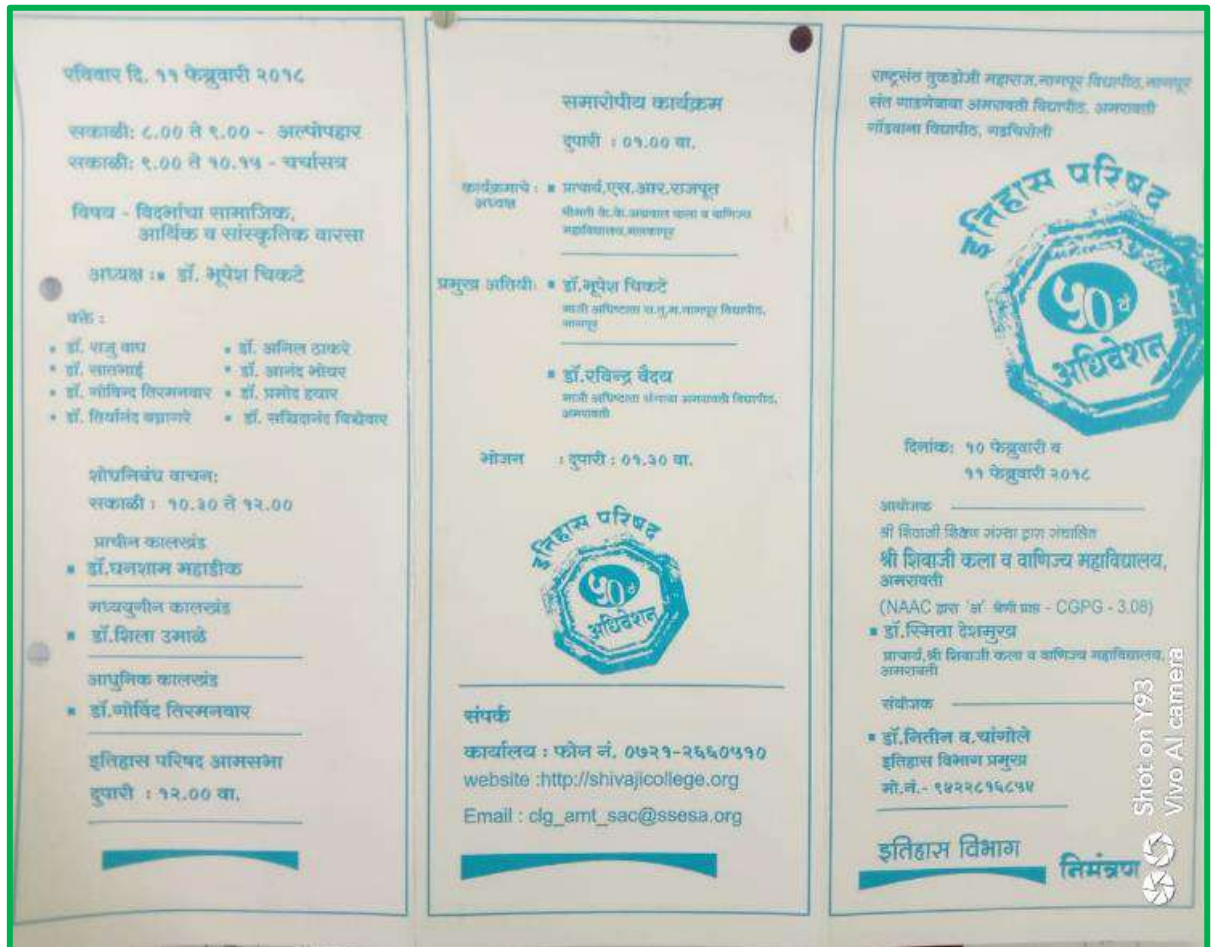 रविवार दि. ११ फेब्रुवारी २०१८
सकाळी: ८.00 ते ९.00 - अल्पोपहार
सकाळी: ९.00 ते १०.१५ - चर्चासत्र
विषय - विदर्भाचा सामाजिक,
आर्थिक व सांस्कृतिक वारसा
अध्यक्ष : डॉ. भूपेश चिकटे
वक्ते :
डॉ. राजु वाघ
डॉ. अनिल ठाकरे
डॉ. सातभाई
डॉ. आनंद भोयर
डॉ. गोविन्द तिरमनवार
डॉ. प्रमोद
डॉ.
डॉ. सच्चिदानंद
शोधनिबंध वाचन:
सकाळी : १०.३० ते १२.००
प्राचीन कालखंड
डॉ.घनशाम महाडीक
मध्ययुगीन कालखंड
डॉ.शिला उमाळे
आधुनिक कालखंड
डॉ.गोविंद तिरमनवार
इतिहास परिषद आमसभा
दुपारी : १२.०० वा.
समारोपीय कार्यक्रम
दुपारी : ०१.00 वा.
कार्यक्रमाचे : प्राचार्य.एस.आर.राजपूत
अध्यक्ष
श्रीमती के.के.अग्रवाल कला व वाणिज्य
महाविद्यालय,
प्रमुख अतिथी: डॉ.भूपेश चिकटे
माजी अधिष्टाता रा.तु.म.नागपूर विद्यापीठ,
नागपूर
डॉ.रविन्द्र वैदय
माजी अधिष्टाता अमरावती विद्यापीठ,
अमरावती
भोजन : दुपारी : ०१.३० वा.
इतिहास परिषद
५0 वे
अधिवेशन
संपर्क
कार्यालय : फोन नं. ०७२१-२६६०५१०
website :http://shivajicollege.org
Email : clg_amt_sac@ssesa.org
राष्ट्रसंत तुकडोजी महाराज,नागपूर विद्यापीठ,नागपूर
संत गाडगेबाबा अमरावती विद्यापीठ, अमरावती
गोंडवाना विद्यापीठ, गडचिरोली
इतिहास परिषद
५0 वे
अधिवेशन
दिनांक: १० फेब्रुवारी व
११ फेब्रुवारी २०१८
आयोजक
श्री शिवाजी शिक्षण संस्था द्वारा संचालित
श्री शिवाजी कला व वाणिज्य महाविद्यालय,
अमरावती
(NAAC द्वारा 'अ' श्रेणी प्राप्त - CGPG - 3.08)
डॉ.स्मिता देशमुख
प्राचार्य,श्री शिवाजी कला व वाणिज्य महाविद्यालय,
अमरावती
संयोजक
डॉ.नितीन व.चांगोले
इतिहास विभाग प्रमुख
मो.नं.- ९४२२८१६८५५
इतिहास विभाग
निमंत्रण
Shot on Y93
Vivo AI camera